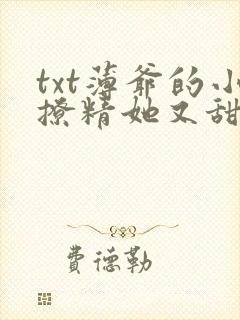 txt薄爷的小
撩精她又甜
费德勒